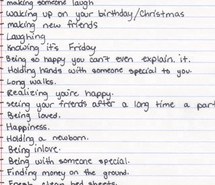 making someone laugh
waking up on your birthday/Christmas
making new friends
Laughing
Knowing it's Friday
Being so happy you can't even explain it.
Holding hands with someone special to you.
Long walks.
Realizing you're happy.
seeing your friends after a long time a part
Being loved.
Happiness.
Holding a newborn.
Being inlove.
Being with someone special.
Finding money on the ground.
Fresh clean bed sheets